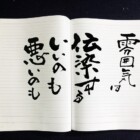 雰囲気は
伝染する
いいのも
悪いのも